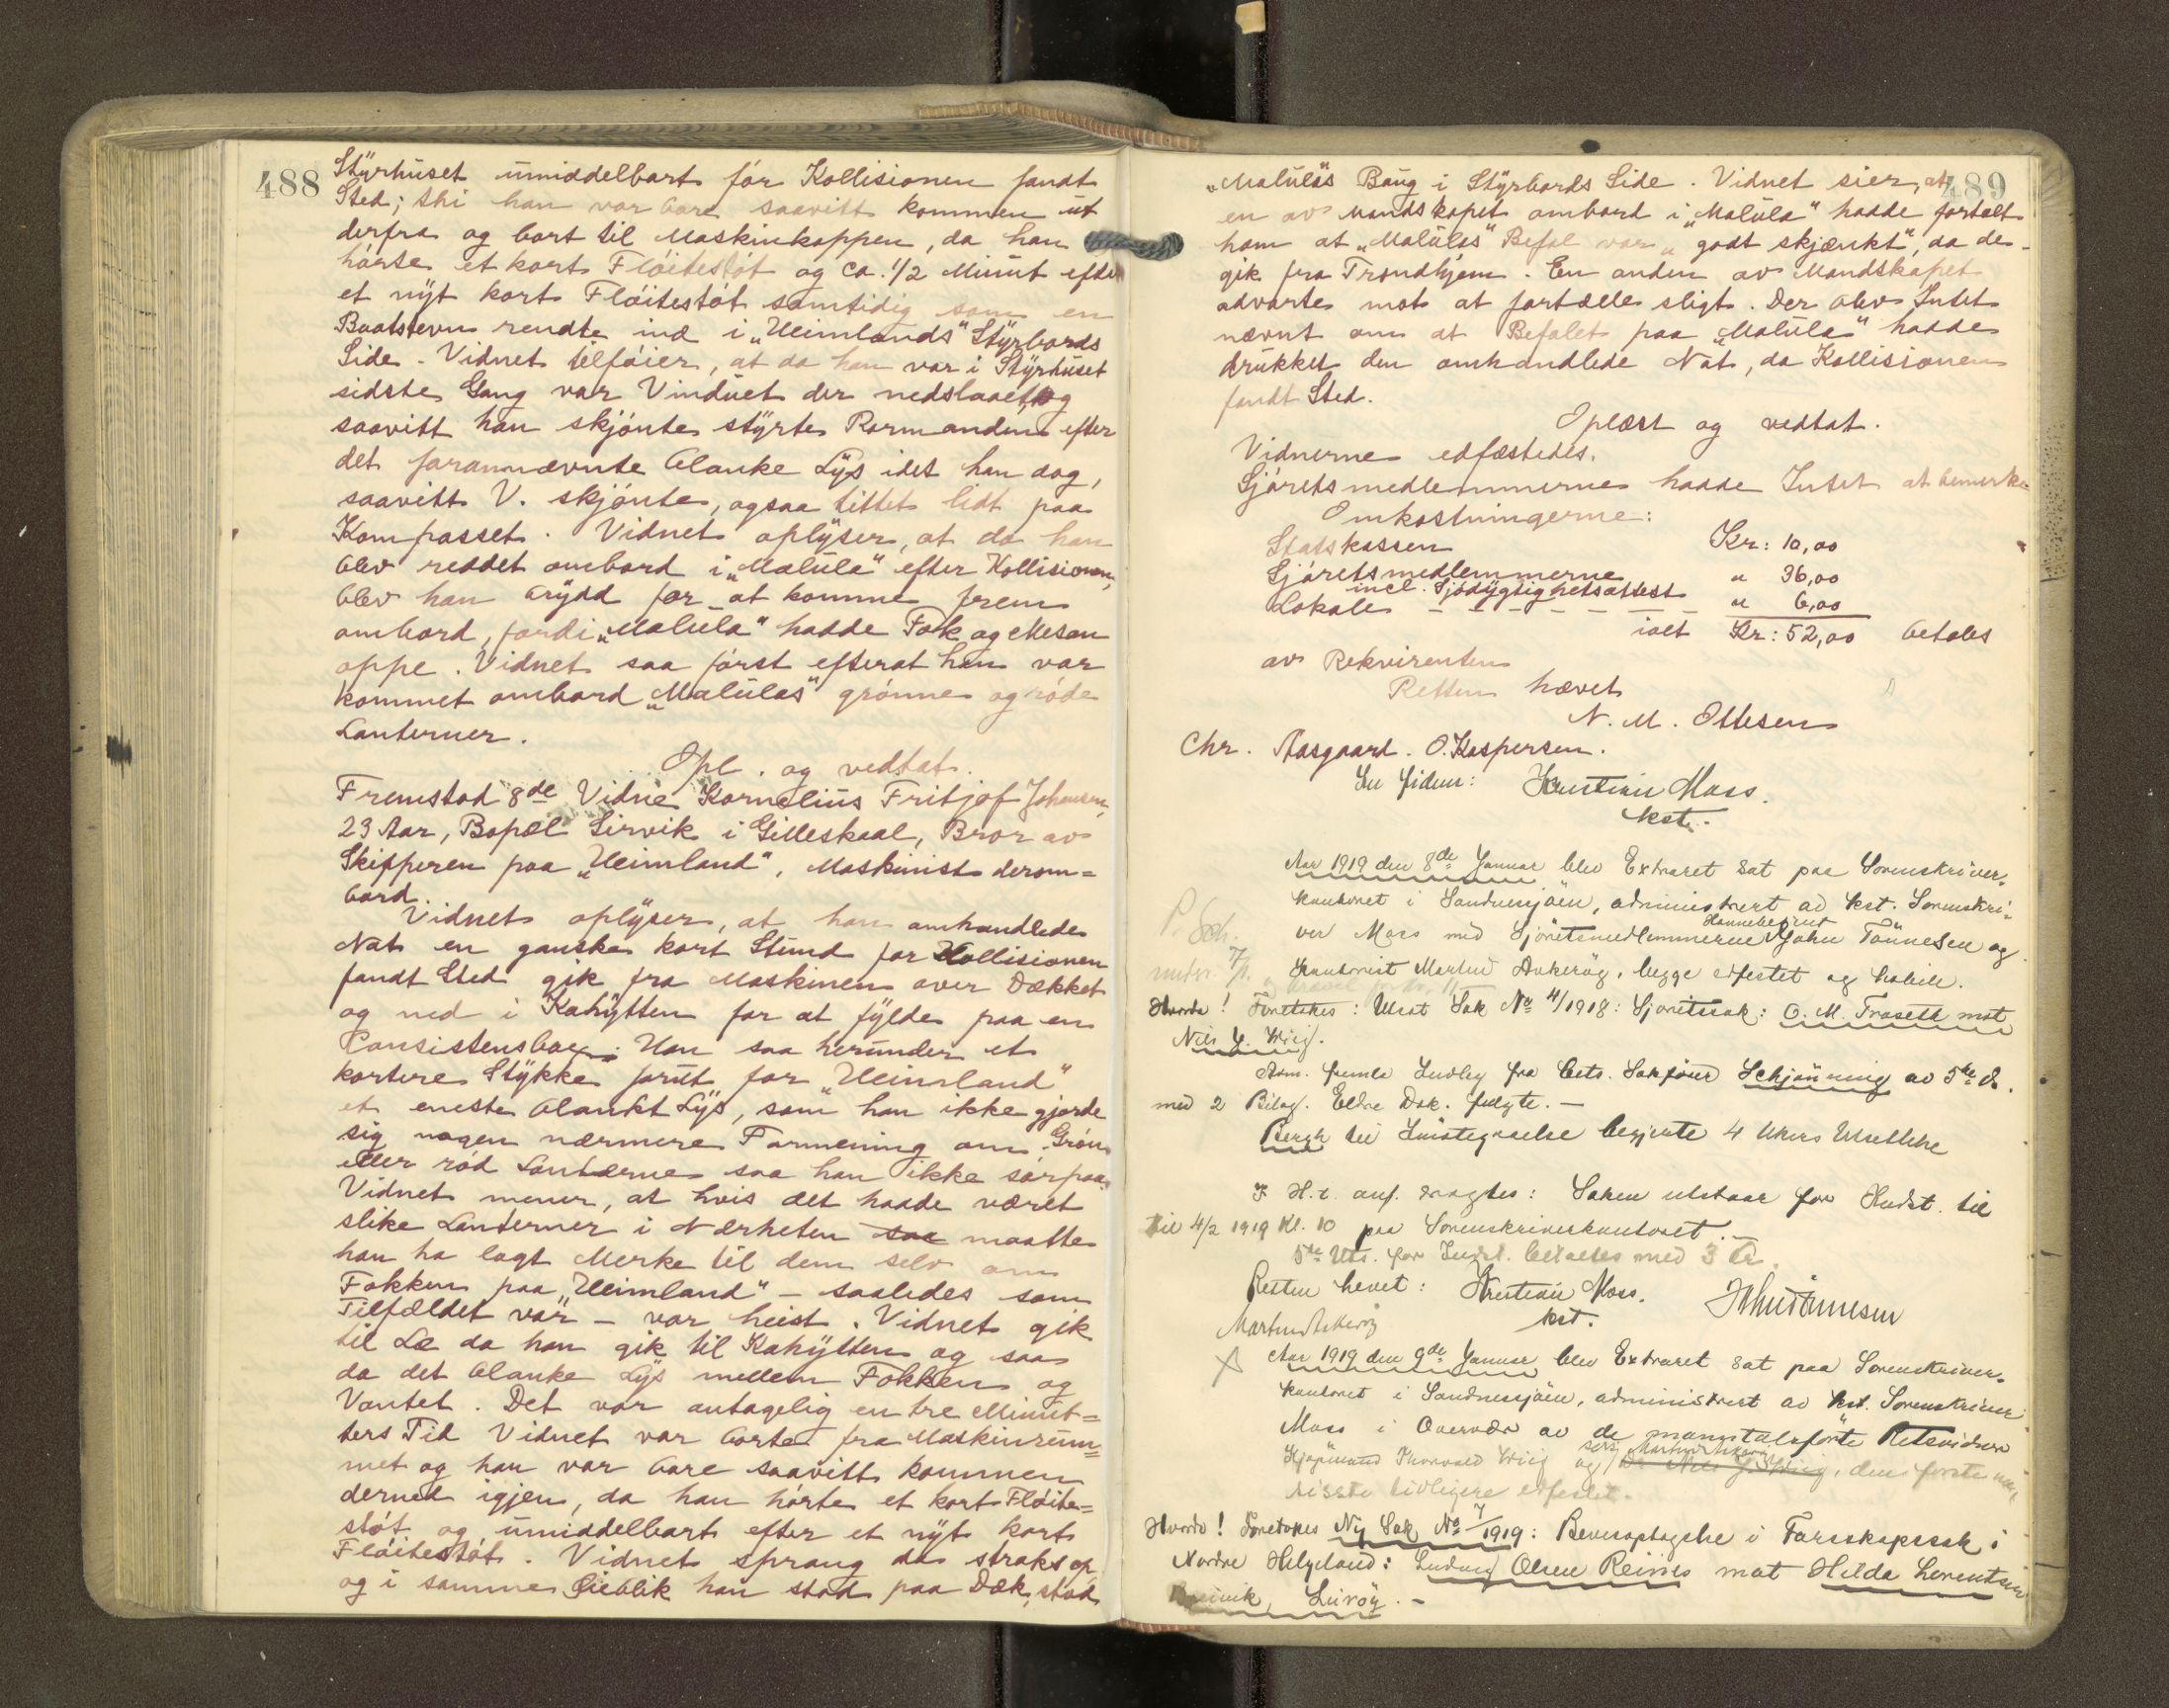 488
Styrhuset umiddelbart før Kollisionen fandt
Sted; thi han var bare saavitt kommen ut
derfra og bort til Maskinkappen, da han
hørte et kort Fløitestøt og ca. 1/2 Minut efter
et nyt kort Fløitestøt samtidig som en
Baatstevn rendte ind i „Heimlands" Styrbords
Side. Vidnet tilføier, at da han var i Styrhuset
sidste Gang var Vinduet der nedslaaet, og
saavitt han skjønte styrte Rormanden efter
det forannævnte blanke Lys idet han dog,
saavitt V. skjønte, ogsaa tittet lidt paa
Kompasset. Vidnet oplyser, at da han
blev reddet ombord i „Malula" efter Kollisionen,
blev han brydd for at komme frem
ombord, fordi „Malula" hadde Fok og Mesan
oppe. Vidnet saa først efterat han var
kommet ombord „Malulas" grønne og røde
Lanterner.
Opl. og vedtat.
Fremstod 8de Vidne Kornelius Fritjof Johansen,
23 Aar, Bopæl Sirvik i Gilleskaal, Bror av
Skipperen paa „Heimland", Maskinist derom=
bord.
Vidnet oplyser, at han omhandlede
Nat en ganske kort Stund for Kollisionen
fandt Sted gik fra Maskinen over Dækket
og ned i Kahytten for at fylde paa en
Consistensbox. Han saa herunder et
kortere Stykke forut for „Heimland"
et eneste blankt Lys, som han ikke gjorde
sig nogen nærmere Formening om. Grøn
eller rød Lanterne saa han ikke sørpaa.
Vidnet mener, at hvis det hadde været
slike Lanterner i Nærheten saa maatte
han ha lagt Merke til dem selv om
Fokken paa „Heimland" – saaledes som
Tilfældet var – var heist. Vidnet gik
til Læ da han gik til Kahytten og saa
da det blanke Lys mellem Fokken og
Vantet. Det var antagelig en tre Minut=
ters Tid Vidnet var borte fra Maskinrum=
met og han var bare saavitt kommen
derned igjen, da han hørte et kort Fløite=
støt og umiddelbart efter et nyt kort
Fløitestøt. Vidnet sprang da straks op
og i samme Øieblik han stod paa Dæk, stod
489
„Malulas" Baug i Styrbords Side. Vidnet sier, at
en av Mandskapet ombord i „Malula" hadde fortalt
ham at „Malulas" Befal var „godt skjænkt", da de
gik fra Trondhjem. En anden av Mandskapet
advarte mot at fortælle sligt. Der blev Intet
nævnt om at Befalet paa „Malula" hadde
drukket den omhandlede Nat, da Kollisionen
fandt Sted.
Oplæst og vedtat.
Vidnerne edfæstedes.
Sjøretsmedlemmerne hadde Intet at bemerke
Omkostningerne:
Statskassen Kr: 10,00
Sjøretsmedlemmerne " 36,00
incl. Sjødygtighetsattest
Lokale – – – – – – – " 6,00
ialt Kr: 52,00 betales
av Rekvirenten
Retten hævet
N. M. Ottesen
Chr. Aasgaard. O. Kaspersen.
In fidem: Kristian Moss.
kst.
Aar 1919 den 8de Januar blev Extraret sat paa Sorenskriver=
kontoret i Sandnessjøen, administrert av kst. Sorenskri=
ver Moss med Sjøretsmedlemmerne John Tønnesen og
Kontorist Martin Askerøy, begge edfestet og habile.
Hvorda! Foretokes: Utsat Sak No 4/1918: Sjøretssak: O. M. Traseth mot
Nils J. Wiig.
Adm. fremla Indleg fra Overs. Sakfører Schjønning av 5te ds.
med 2 Bilag. Eldre Dok. fulgte. –
Bergh til Imøtegaaelse begjærte 4 Ukers Utsettelse
I H. t. anf. vragtes: Saken utstaar for Indst. til
til 4/2 1919 Kl. 10 paa Sorenskriverkontoret. –
5te Uts. for Indst. betaltes med 3 Kr.
Retten hevet: Kristian Moss. John Tønnesen
Martin Askerøy kst.
Aar 1919 den 9de Januar blev Extraret sat paa Sorenskriver=
kontoret i Sandnessjøen, administrert av kst. Sorenskriver
Moss i Overvær av de mangtalsførte Retsvidner
Kjøpmand Thorvald Wiig og Martin Askerøy, den første nu,
sisste tidligere edfestet.
Hvorda! Foretokes Ny Sak No 7/1919: Bevisoptagelse i Farsskapssak i
Nordre Helgeland: Ludvig Olsen Reines mot Hilda Lorentsen
Lurøy. –